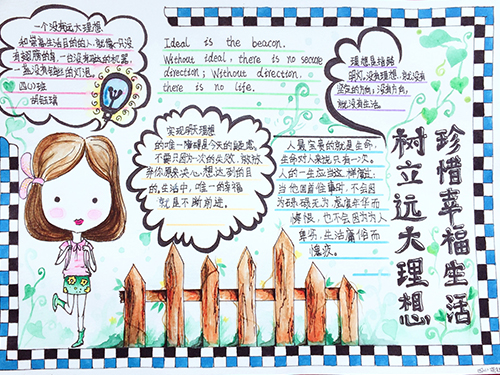 一个没有远大理想
和崇高生活目的的人,就像一只没
有翅膀的鸟,一台没有
一盏没有钨丝的灯泡。
Ideal is the beacon.
Without ideal, there is no secure
direction; Without direction,
there is no life.
理想是指路
明灯。没有理想,就没有
坚定的方向;没有方向,
就没有生活。
实现明天理想
的唯一障碍是今天的疑虑。
不要只因为一次的失败,就放
弃你原来决心想达到的目
的。生活中,唯一的幸福
就是不断前进。
人最宝贵的就是生命,
生命对人来说只有一次。
人的一生应当这样度过:
当他回首往事时,不会因
为碌碌无为,虚度年华而
悔恨,也不会因为为人
卑劣,生活庸俗而
愧疚。
珍惜幸福生活
树立远大理想